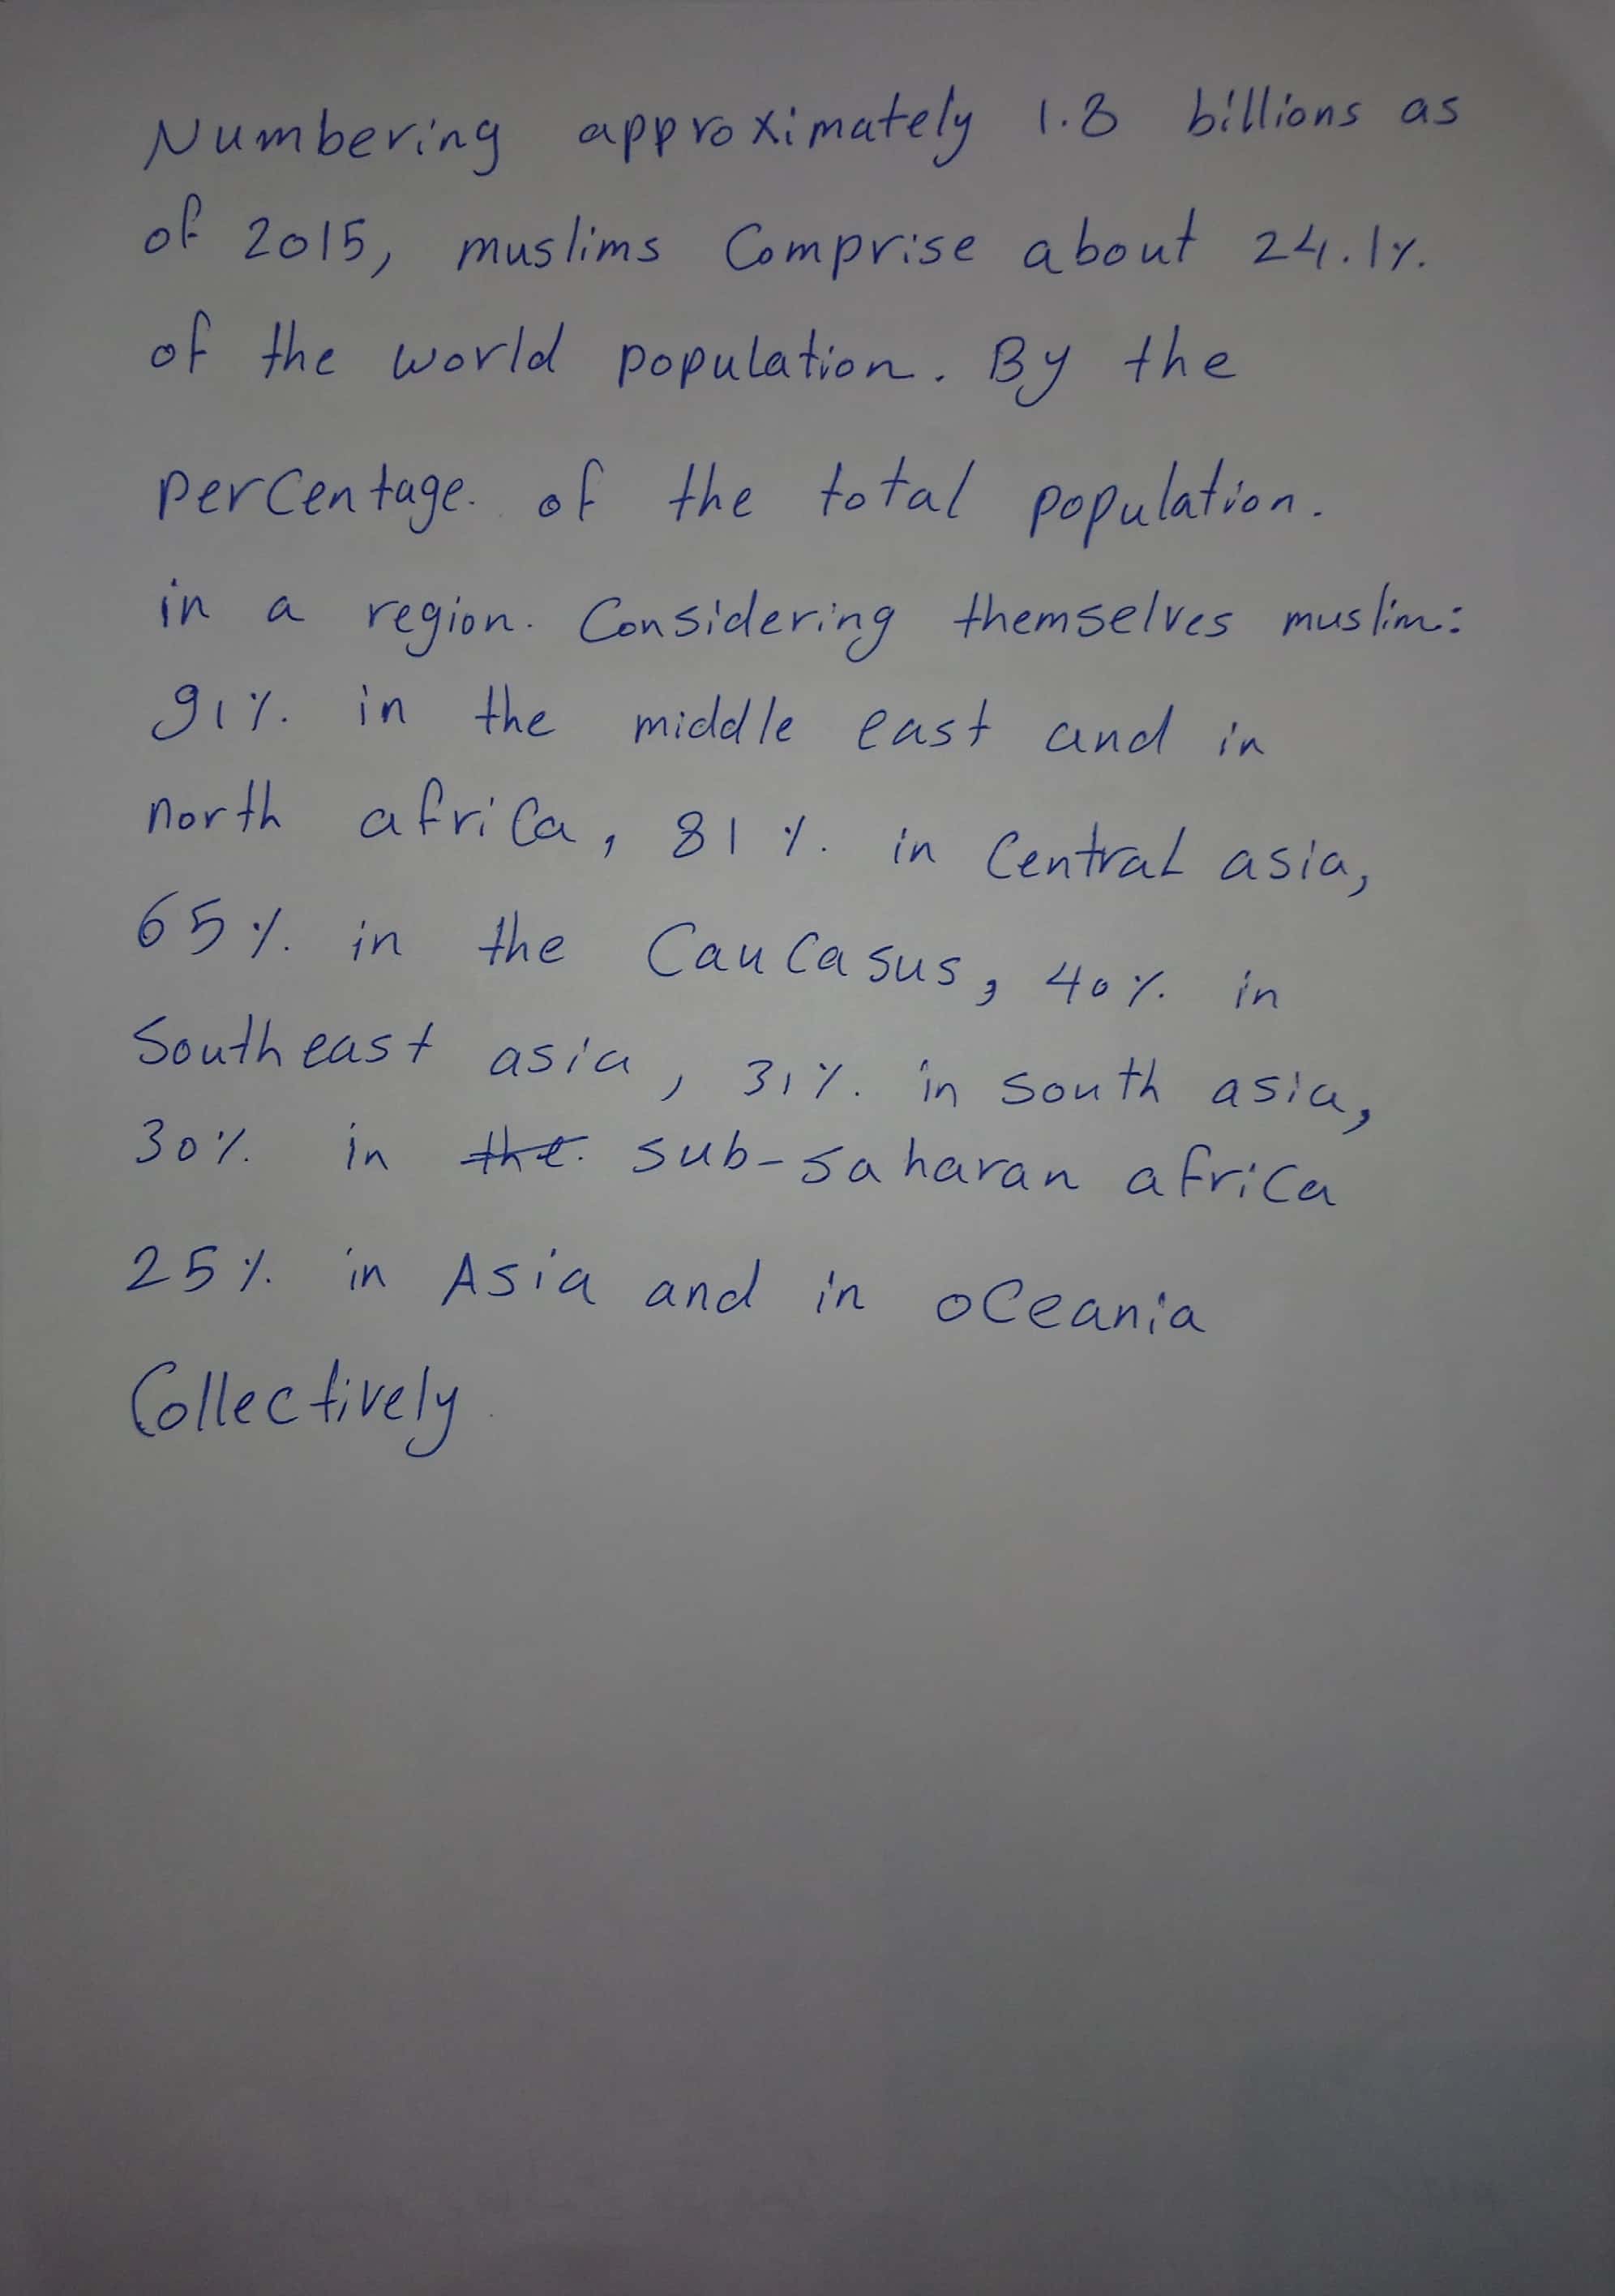 Numbering approximately 1.8 billions as
of 2015, muslims Comprise about 24.1%
of the world population. By the
percentage. of the total population.
in a region. Considering themselves muslim:
91% in the middle east and in
north africa, 81% in Central asia,
65% in the Caucasus, 40% in
Southeast asia, 31% in south asia,
30% in the sub-saharan africa
25% in Asia and in oceania
Collectively